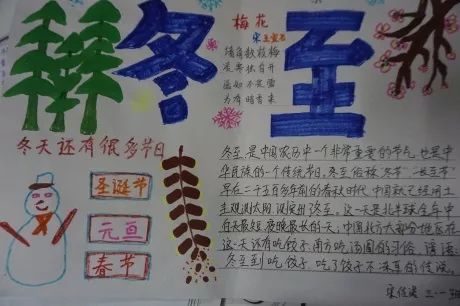 冬至
梅花
宋 王安石
墙角数枝梅
凌寒独自开
遥知不是雪
为有暗香来
冬天还有很多节日
圣诞节
元旦
春节
冬至是中国农历中一个非常重要的节气,也是中
华民族的一个传统节日,冬至俗称"冬节""长至节"
早在二千五百多年前的春秋时代,中国就已经用土
圭观测太阳,测定出冬至。这一天是北半球全年中
白天最短、夜晚最长的一天,中国北方大部分地区在
这一天还有吃饺子,南方吃汤圆的习俗,谚语:
冬至到吃饺子,吃了饺子不冻耳的传说。